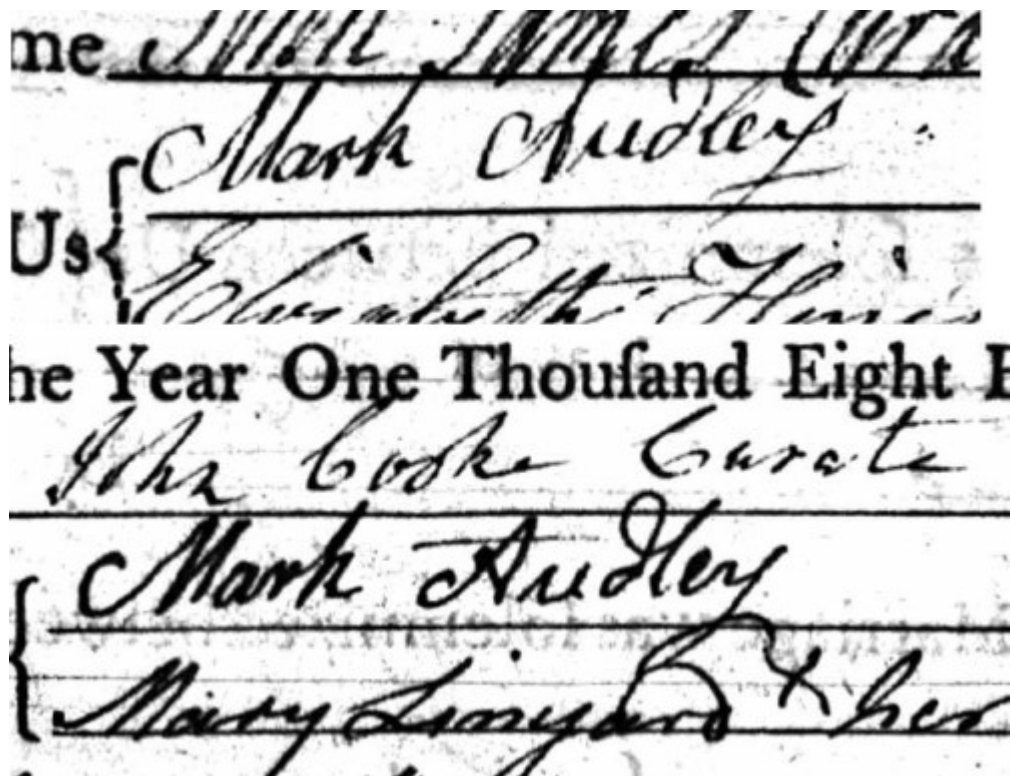 me
Mark Audley
Us
Elizabeth
he Year One Thouſand Eight
John Cooke Curate
Mark Audley
Mary Linyard X her